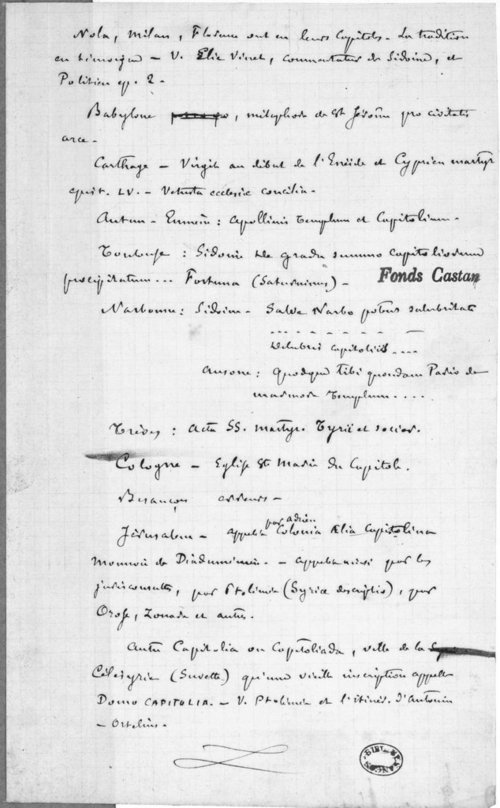 Nola, Milan, Florence ont eu leurs Capitoles. La tradition
en témoigne — V. Elie Vinet, commentateur de Sidoine, et
Politien ep. 2. —
Babylone, métaphore de St Jérôme pro civitatis
arce.
Carthage — Virgile au début de l'Enéide et Cyprien martyr
epist. LV. — Vetusta ecclesiæ concilia —
Autun — Eumène : Apollinis Templum et Capitolium —
Toulouse : Sidoine de gradu summo capitoliorum
præcipitatum... Fortuna (Saturninus) —
Fonds Castan
Narbonne : Sidoine — Salve Narbo potens salubritate
Delubris capitoliis ....
Ausone : Quodque tibi quondam Pario de
marmore Templum ....
Trèves : Acta SS. martyr. Tyrii et socior.
Cologne — Eglise Ste Marie du Capitole.
Besançon —
par adrien
Jérusalem — appelée Colonia Ælia Capitolina
Monnaie de Diaduménien. — appelée ainsi par les
jurisconsultes, par Ptolémée (Syriæ descriptio), par
Orose, Zonare et autres.
Autre Capitolia ou Capitoliada, ville de la
Célésyrie (Suvette) qu'une vieille inscription appelle
Domo CAPITOLIA. — V. Ptolémée et l'itinér. d'Antonin
— Ortelius.